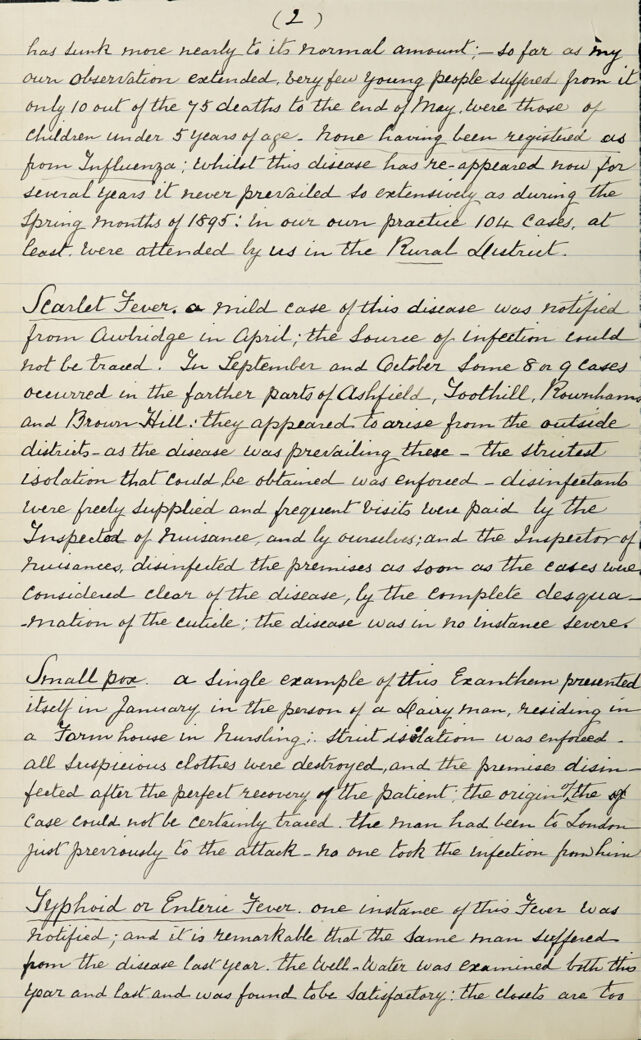 (2)
has sunk more nearly to its normal amount; – so far as my
own observation extended, very few young people suffered from it
only 10 out of the 75 deaths to the end of May, were those of
Children under 5 years of age – None having been registered as
from Influenza; Whilst this disease has re-appeared now for
several years it never prevailed so extensively as during the
Spring months of 1895: in our own practice 104 cases, at
least, were attended by us in the Rural District.
Scarlet Fever. a mild case of this disease was notified
from Awbridge in April; the source of infection could
not be traced. In September and October some 8 or 9 cases
occurred in the farther parts of Ashfield, Toothill, Rownhams
and Brown Hill: they appeared to arise from the outside
districts – as the disease was prevailing there – the strictest
isolation that could be obtained was enforced – disinfectants
were freely supplied and frequent visits were paid by the
Inspector of Nuisance, and by ourselves; and the Inspector of
Nuisances, disinfected the premises as soon as the cases were
considered clear of the disease, by the complete desqua–
–mation of the cuticle; the disease was in no instance severe.
Small pox. a single example of this Exanthem presented
itself in January in the person of a Dairy man, residing in
a Farm house in Nursling; strict isolation was enforced –
all suspicious clothes were destroyed, and the premises disin–
fected after the perfect recovery of the patient; the origin of the
case could not be certainly traced. the man had been to London
just previously to the attack – no one took the infection from him
Typhoid or Enteric Fever. one instance of this Fever was
notified; and it is remarkable that the same man suffered
from the disease last year. the Well-Water was examined both this
year and last and was found to be satisfactory: the closets are too